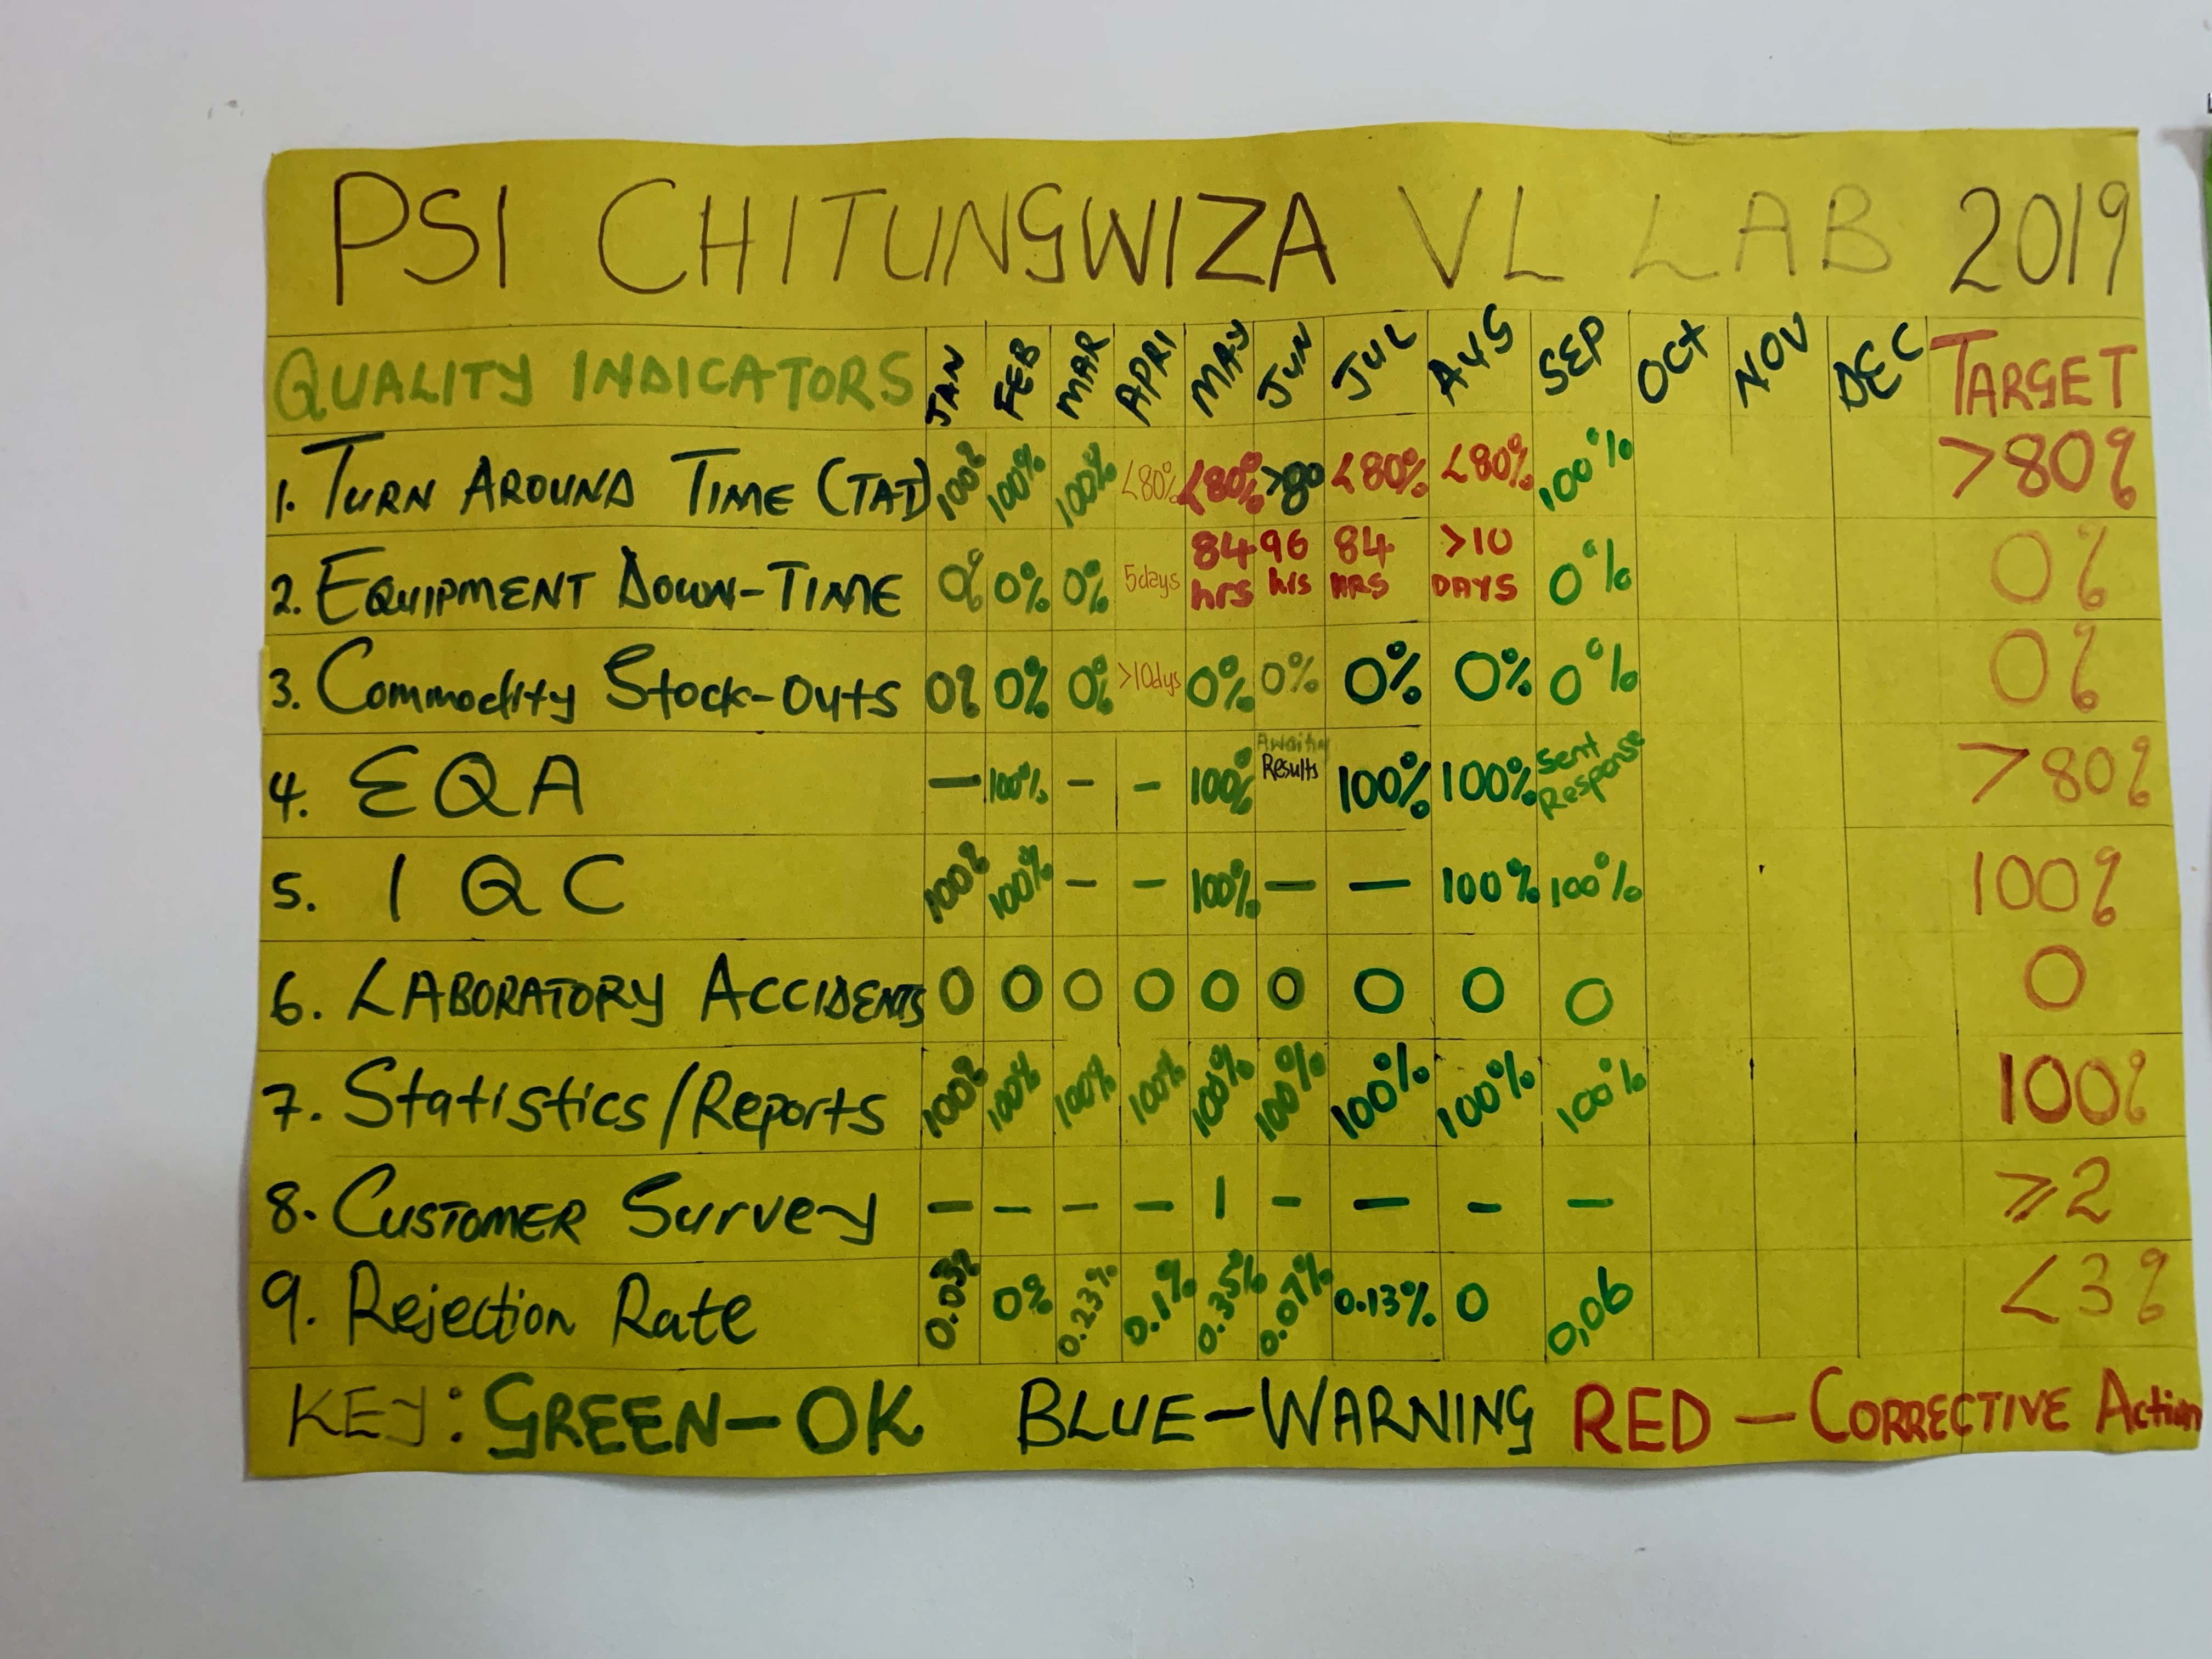 PSI CHITUNGWIZA VL LAB 2019
QUALITY INDICATORS JAN FEB MAR APRI MAY JUN JUL AUG SEP OCT NOV DEC TARGET
1. TURN AROUND TIME (TAT) 100% 100% 100% <80% <80% >80 <80% <80% 100% >80%
2. EQUIPMENT DOWN-TIME 0% 0% 0% 5days 84 hrs 96 hrs 84 HRS >10 DAYS 0% 0%
3. Commodity Stock-Outs 0% 0% 0% >10dys 0% 0% 0% 0% 0% 0%
4. EQA — 100% - - 100% Results 100% 100% Sent Response >80%
5. IQC 100% 100% - - 100% — — 100% 100% 100%
6. LABORATORY ACCIDENTS 0 0 0 0 0 0 0 0 0 0
7. Statistics/Reports 100% 100% 100% 100% 100% 100% 100% 100% 100% 100%
8. CUSTOMER Survey — - - - 1 - — - — ≥2
9. Rejection Rate 0.03% 0% 0.23% 0.1% 0.35% 0.07% 0.13% 0 0,06 <3%
KEY: GREEN-OK BLUE-WARNING RED - CORRECTIVE Action